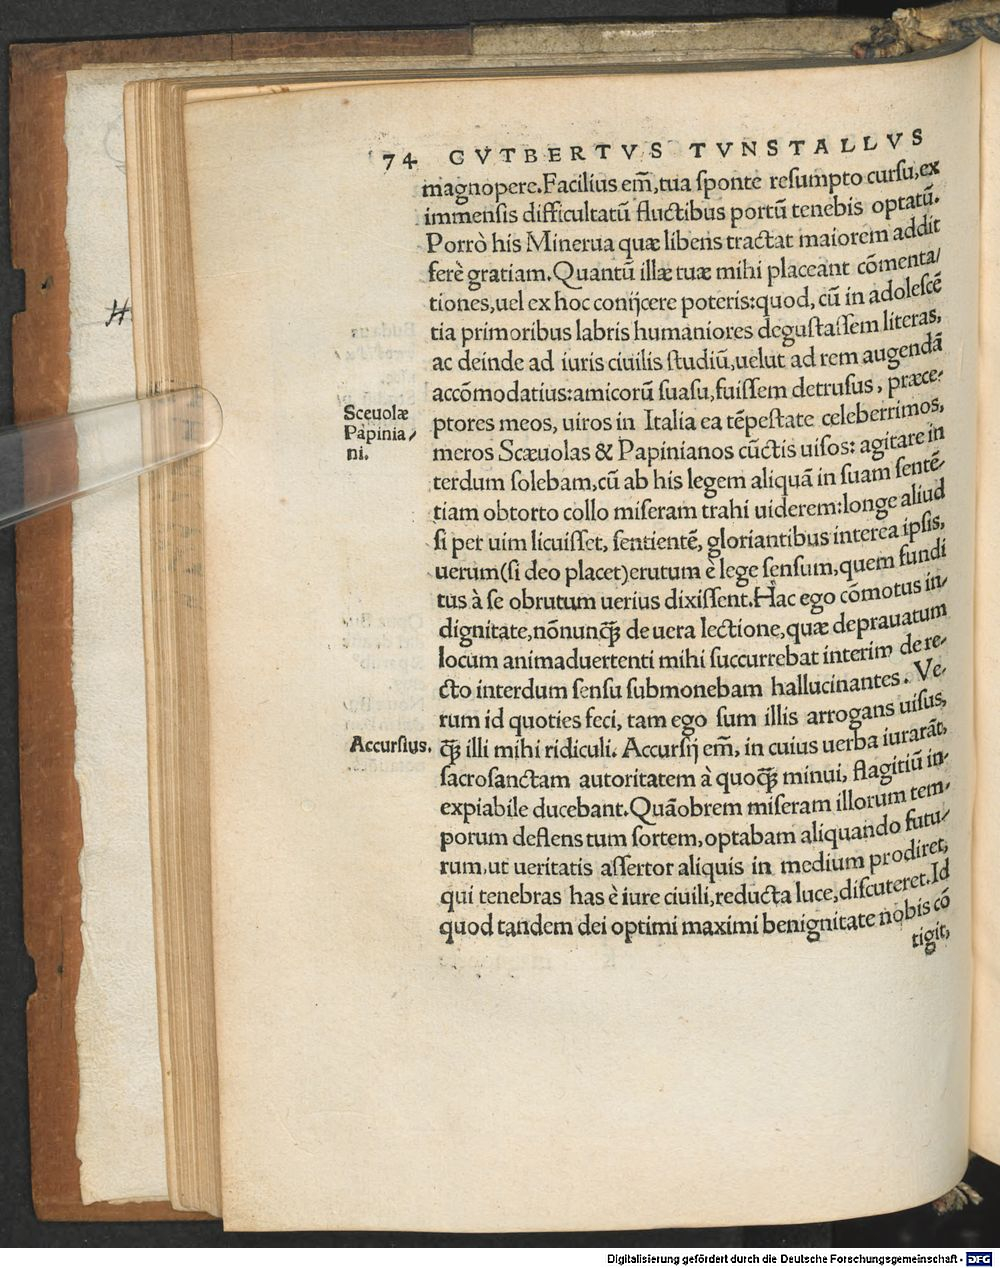 74 CVTBERTVS TVNSTALLVS
magnopere.Facilius em̃,tua sponte resumpto cursu,ex
immensis difficultatũ fluctibus portũ tenebis optatũ.
Porrò his Minerua quæ libens tractat maiorem addit
ferè gratiam.Quantũ illæ tuæ mihi placeant cõmenta/
tiones,uel ex hoc conijcere poteris:quod, cũ in adolescẽ
tia primoribus labris humaniores degustassem literas,
ac deinde ad iuris ciuilis studiũ,uelut ad rem augendã
accõmodatius:amicorũ suasu,fuissem detrusus, præce-
ptores meos, uiros in Italia ea tẽpestate celeberrimos,
Sceuolæ
Papinia/
ni.
meros Scæuolas & Papinianos cũctis uisos: agitare in
terdum solebam,cũ ab his legem aliquã in suam sentẽ-
tiam obtorto collo miseram trahi uiderem:longe aliud
si per uim licuisset, sentientẽ, gloriantibus interea ipsis,
uerum(si deo placet)erutum è lege sensum,quem fundi
tus à se obrutum uerius dixissent.Hac ego cõmotus in-
dignitate,nõnunꝗ̃ de uera lectione,quæ deprauatum
locum animaduertenti mihi succurrebat interim de re-
cto interdum sensu submonebam hallucinantes. Ve-
rum id quoties feci, tam ego sum illis arrogans uisus,
Accursius.
ꝗ̃ illi mihi ridiculi. Accursij em̃, in cuius uerba iurarãt,
sacrosanctam autoritatem à quoꝗ̃ minui, flagitiũ in-
expiabile ducebant.Quãobrem miseram illorum tem-
porum deflens tum sortem,optabam aliquando futu-
rum,ut ueritatis assertor aliquis in medium prodiret,
qui tenebras has è iure ciuili,reducta luce,discuteret.Id
quod tandem dei optimi maximi benignitate nobis cõ
tigit,
Digitalisierung gefördert durch die Deutsche Forschungsgemeinschaft - DFG